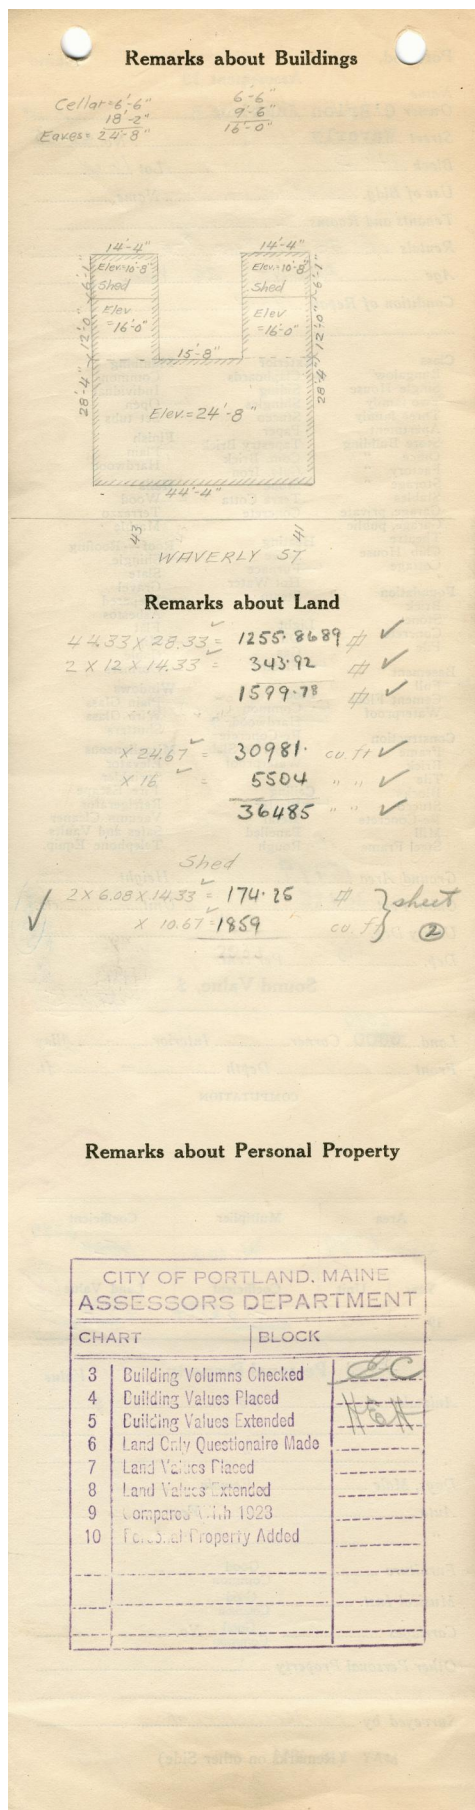 Remarks about Buildings
Cellar = 6'-6"
18'-2"
Eaves = 24'-8"
6'-6"
9'-6"
16'-0"
14'-4"
14'-4"
Elev=10'-8"
Shed
Elev
=16'-0"
Elev=10'-8"
Shed
Elev
=16'-0"
28'-4" x 12'-0" x 6'-1"
28'-4" x 12'-0" x 6'-1"
15'-8"
Elev.=24'-8"
44'-4"
43
41
WAVERLY ST.
Remarks about Land
44.33 X 28.33 = 1255.8689 ✓
2 X 12 X 14.33 = 343.92 ✓
1599.78 ✓
X 24.67 = 30981. cu.ft ✓
X 16 = 5504 " " ✓
36485 " " ✓
Shed
2 X 6.08 X 14.33 = 174.26
X 10.67 = 1859 cu. ft
} sheet
②
Remarks about Personal Property
CITY OF PORTLAND, MAINE
ASSESSORS DEPARTMENT
CHART BLOCK
3 Building Volumns Checked
4 Building Values Placed
5 Building Values Extended
6 Land Only Questionaire Made
7 Land Values Placed
8 Land Values Extended
9 Compares With 1923
10 Personal Property Added